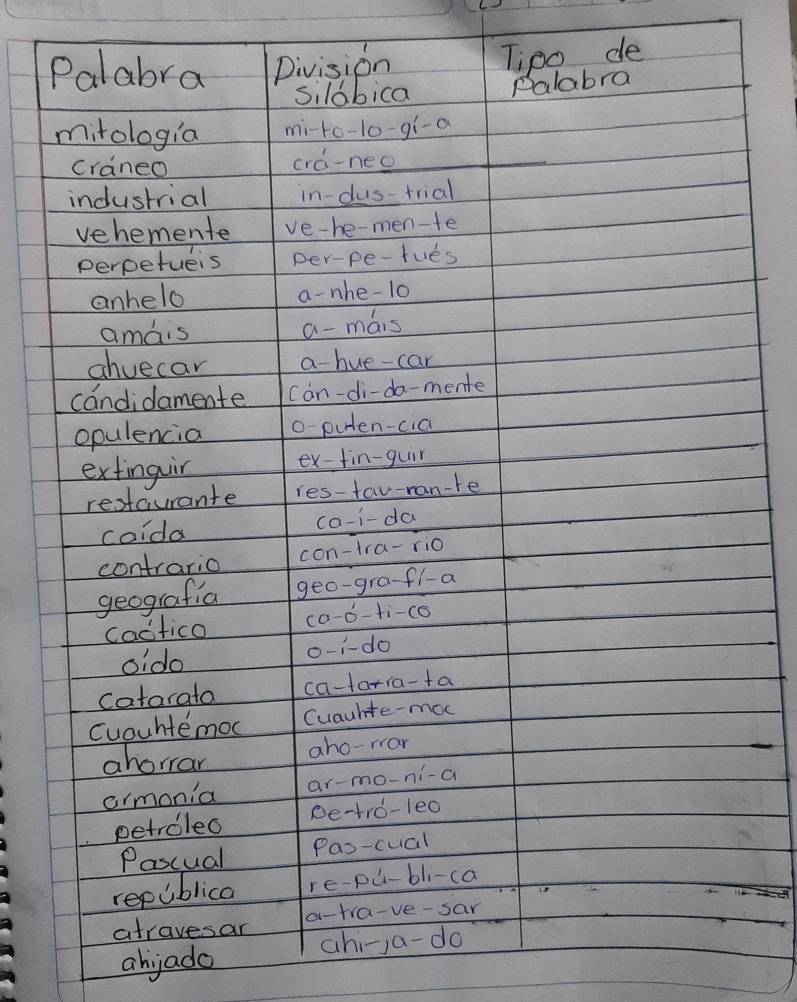 Palabra División Silábica Tipo de Palabra
mitología mi-to-lo-gí-a
cráneo crá-neo
industrial in-dus-trial
vehemente ve-he-men-te
perpetuéis per-pe-tués
anhelo a-nhe-lo
amáis a-máis
ahuecar a-hue-car
cándidamente cán-di-da-mente
opulencia o-pulen-cia
extinguir ex-tin-guir
restaurante res-tau-ran-te
caída ca-í-da
contrario con-tra-rio
geografía geo-gra-fí-a
caótico ca-ó-ti-co
oído o-í-do
catarata ca-ta-ra-ta
Cuauhtémoc Cuauhte-moc
ahorrar aho-rrar
armonía ar-mo-ní-a
petróleo pe-tró-leo
Pascual Pas-cual
república re-pú-bli-ca
atravesar a-tra-ve-sar
ahijado ahi-ja-do